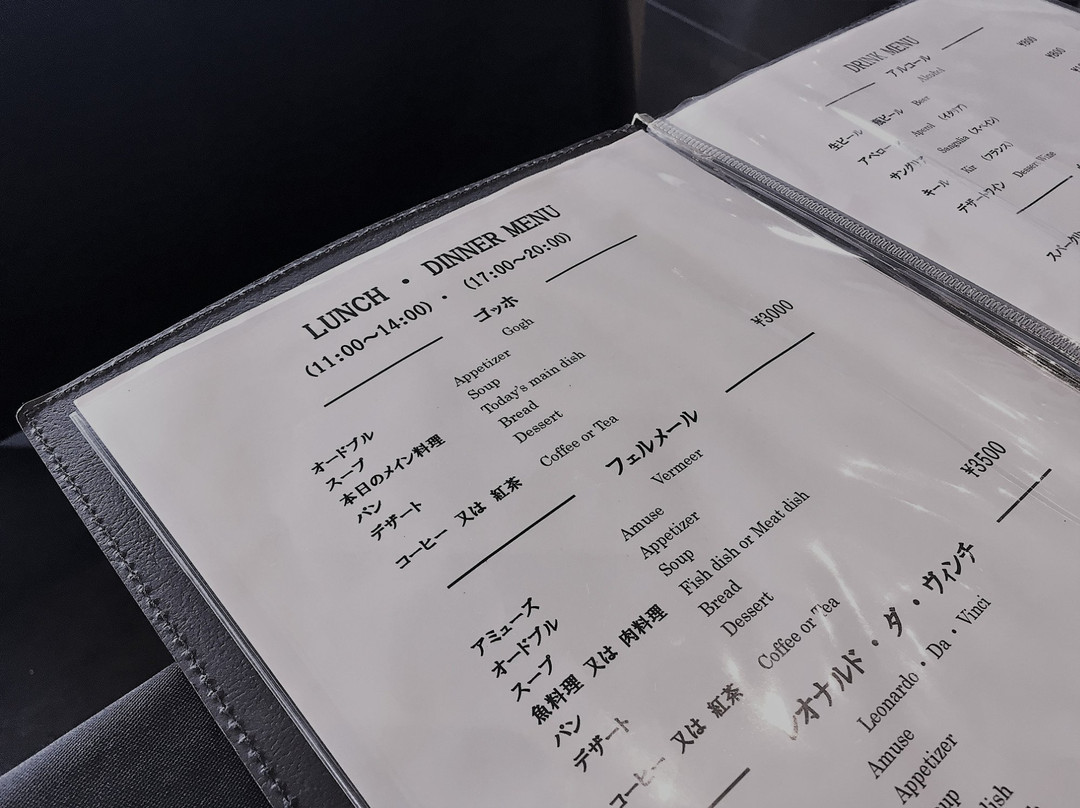 LUNCH ・ DINNER MENU
(11:00～14:00) ・ (17:00～20:00)
ゴッホ
Gogh
¥3000
オードブル Appetizer
スープ Soup
本日のメイン料理 Today's main dish
パン Bread
デザート Dessert
コーヒー 又は 紅茶 Coffee or Tea
フェルメール
Vermeer
¥3500
アミューズ Amuse
オードブル Appetizer
スープ Soup
魚料理 又は 肉料理 Fish dish or Meat dish
パン Bread
デザート Dessert
コーヒー 又は 紅茶 Coffee or Tea
レオナルド・ダ・ヴィンチ
Leonardo・Da・Vinci
Amuse
Appetizer
DRINK MENU
アルコール
Alcohol
生ビール Beer ¥800
アペロール Aperol (イタリア) ¥800
サングリア Sangulia (スペイン)
キール Kir (フランス)
デザートワイン Dessert Wine